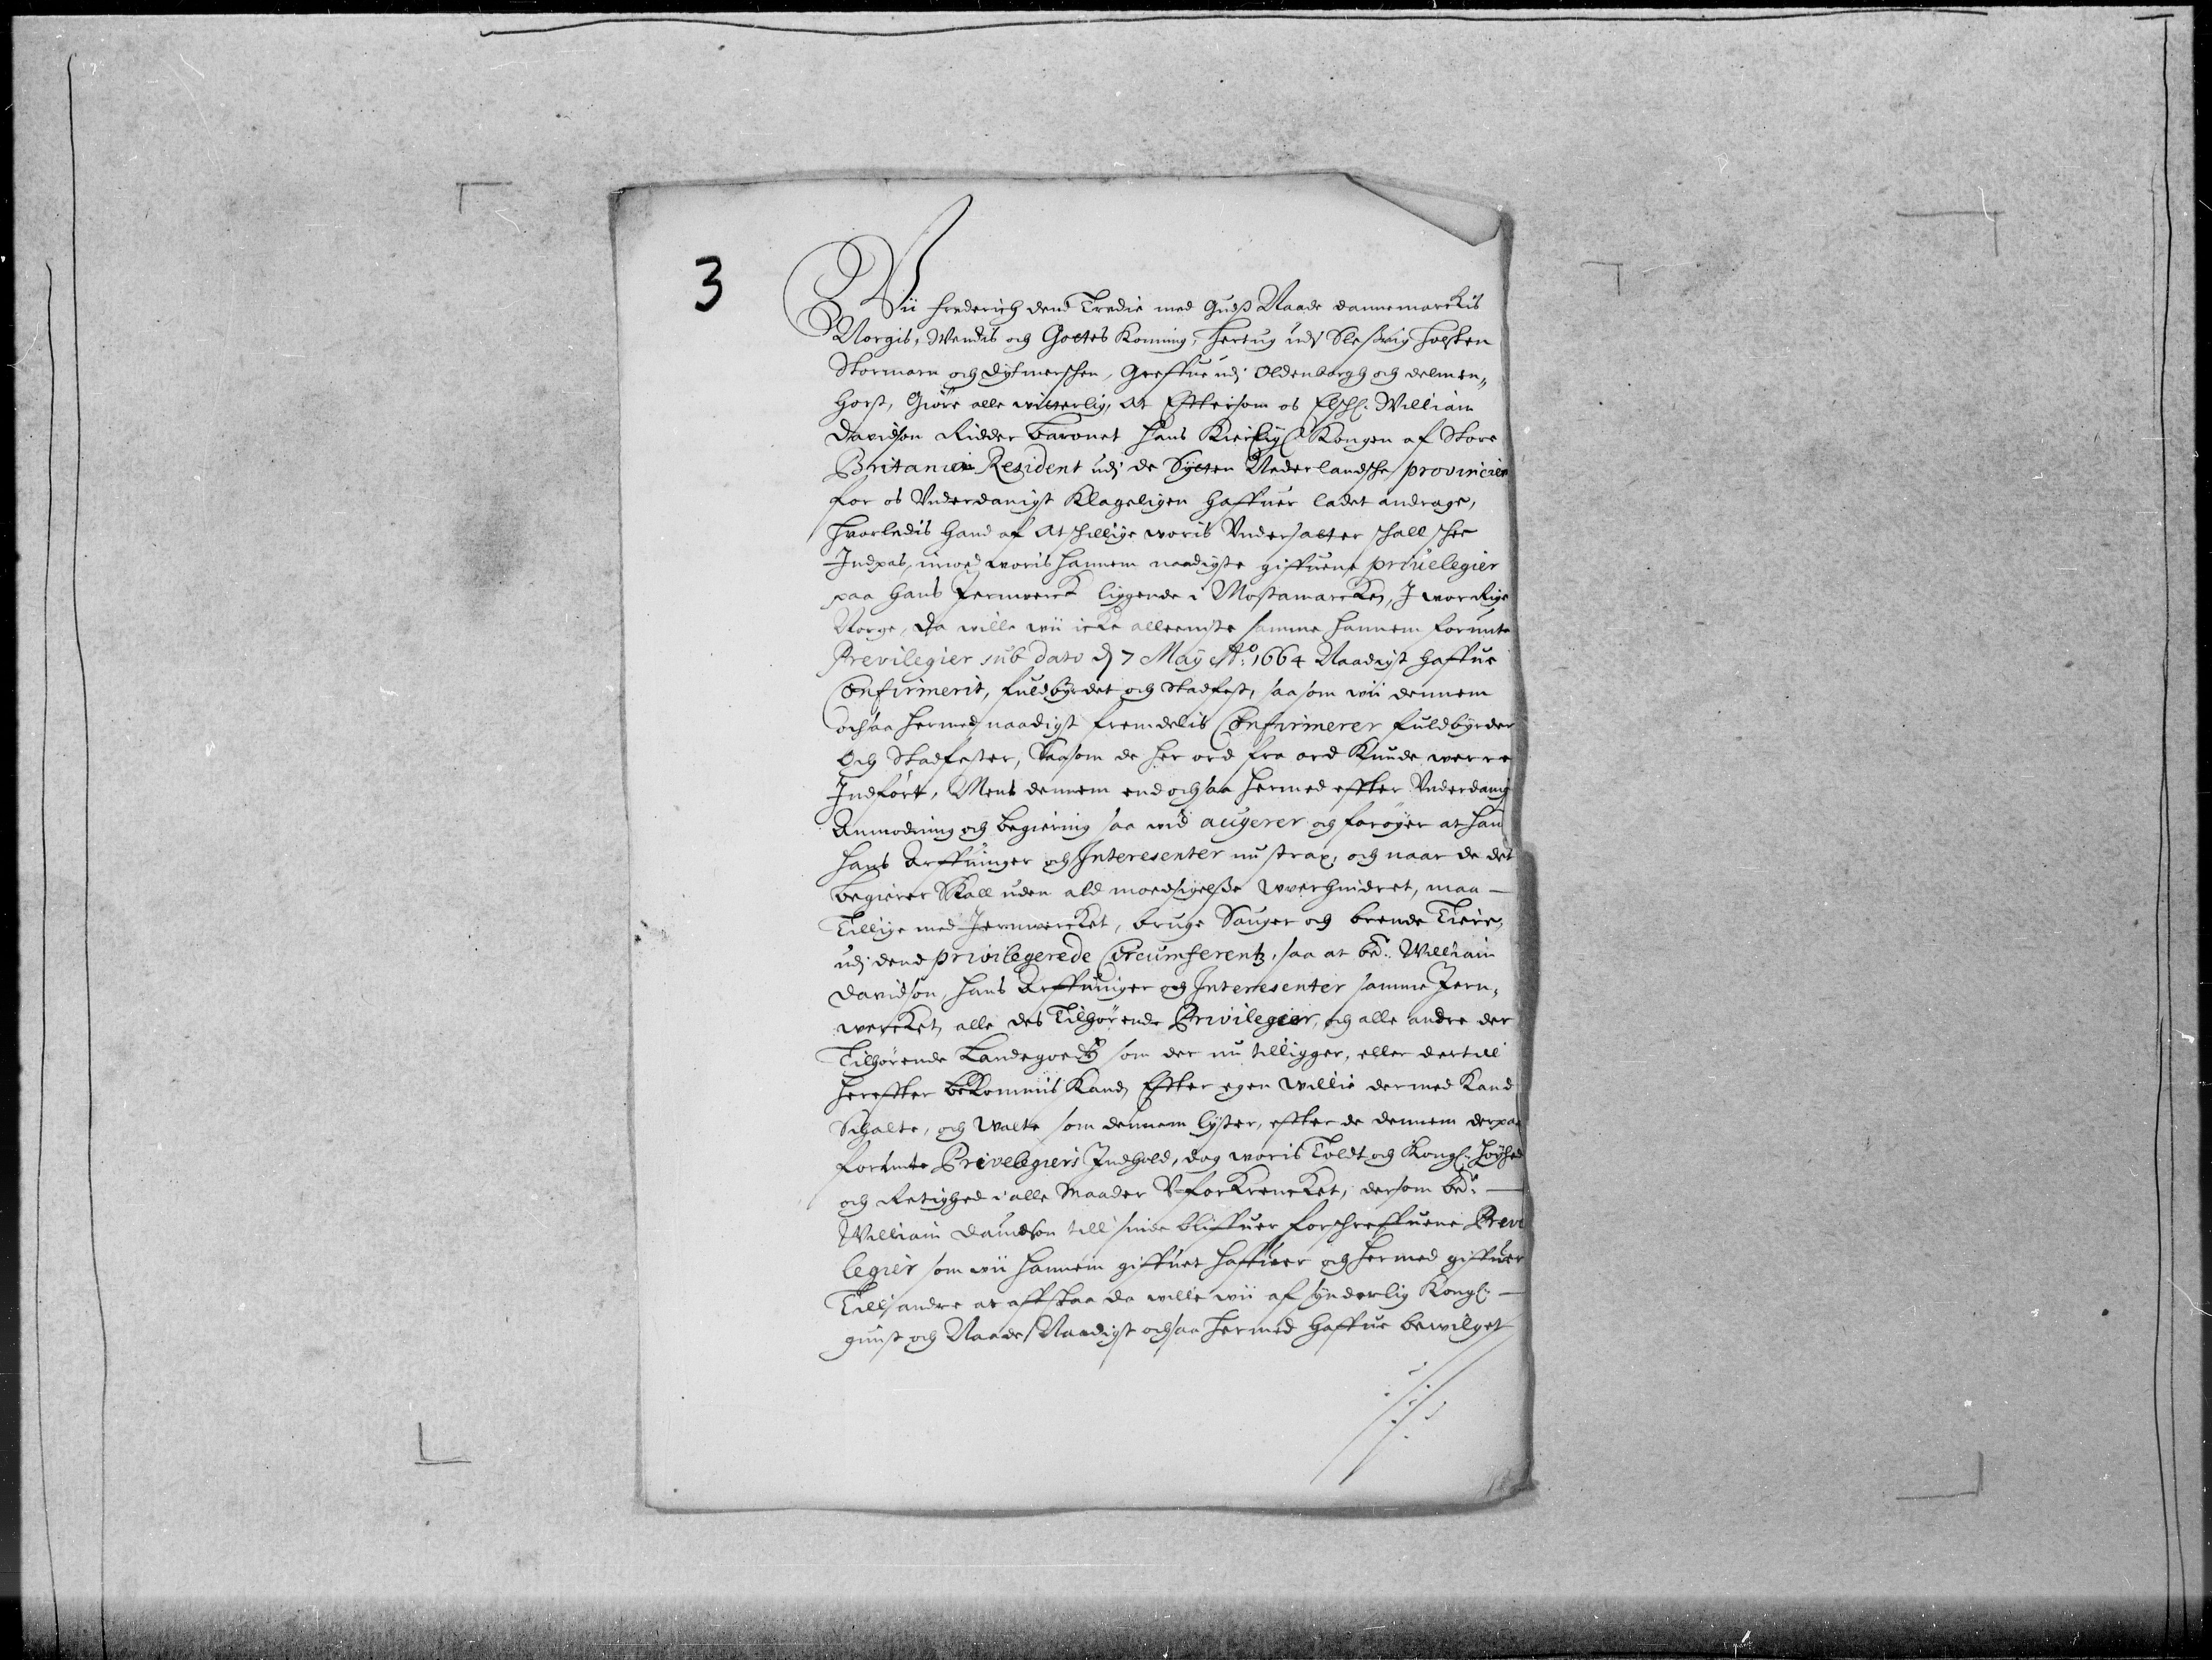 3
Wii Frederich dend Tredie med Guds Naade Dannemarckis
Norgis, Wendis och Gottes Konning, Hertug udj Sleßvig Holsten
Stormarn och Dytmerschen, Greffue udj Oldenborgh och Delmen„
horst, Giöre alle witterlig, at Eftersom os Elschl: William
Davidson Ridder Baronet Hans Kierligh: Kongen af Store
Britanien Resident udj de Sytten Nederlandsche provincier
for os Vnderdanigst Klageligen haffuer ladet andrage,
hvorledis hand af Atschillige woris Vndersatter schall schee
Indpas, imod woris hannem naadigste giffuene privelegier
paa hans Jernverck liggende i Mostamarcken, J wor Rige
Norge, Da wille wii icke alleeniste samme hannem forunte
Previlegier sub dato d 7 Maÿ Ao: 1664 Naadigst haffue
Confirmerit, fuldbyrdet och Stadfest, saasom wii dennem
ochsaa hermed naadigst fremdelis Confirmerer fuldbyrder
Och Stadfester, Saasom de her ord fra ord Kunde werre
Indfört, Mens dennem end ochsaa hermed effter Vnderdanig
Anmodning och begiering saa vid augerer og forøger at hand
hans Arffuinger och Interesenter nu strax, och naar de det
begierer Skall uden ald modsigelsse wverhindret, maa —
Tillige med Jernwercket, bruge Sauger och brende Tiere,
udj dend privilegerede Circumferentz, saa at bdr: William
Davidson, hans Arffuinger og Interesenter samme Jern„
wercket, alle des Tilhörende Privilegier, og alle andre der
Tilhörende Landegoedtz som der nu tilligger, eller dertill
hereffter bekommis Kand, Efter egen willie dermed Kand
Schalte, och walte som dennem lyster, effter de dennem derpaa
forunte Privelegiers Indhold, dog woris Told og Kongl: höyhed
och Retighed i alle Maader Vforkrencket, dersom bdr: —
William Davidson till sinde bliffuer forschreffuene Previ
legier som wii hannem giffuet haffuer och hermed giffuer
Till andre at affstaa da wille wii af synderlig Kongl: —
gunst och Naade Naadigst ochsaa hermed haffue bewilget